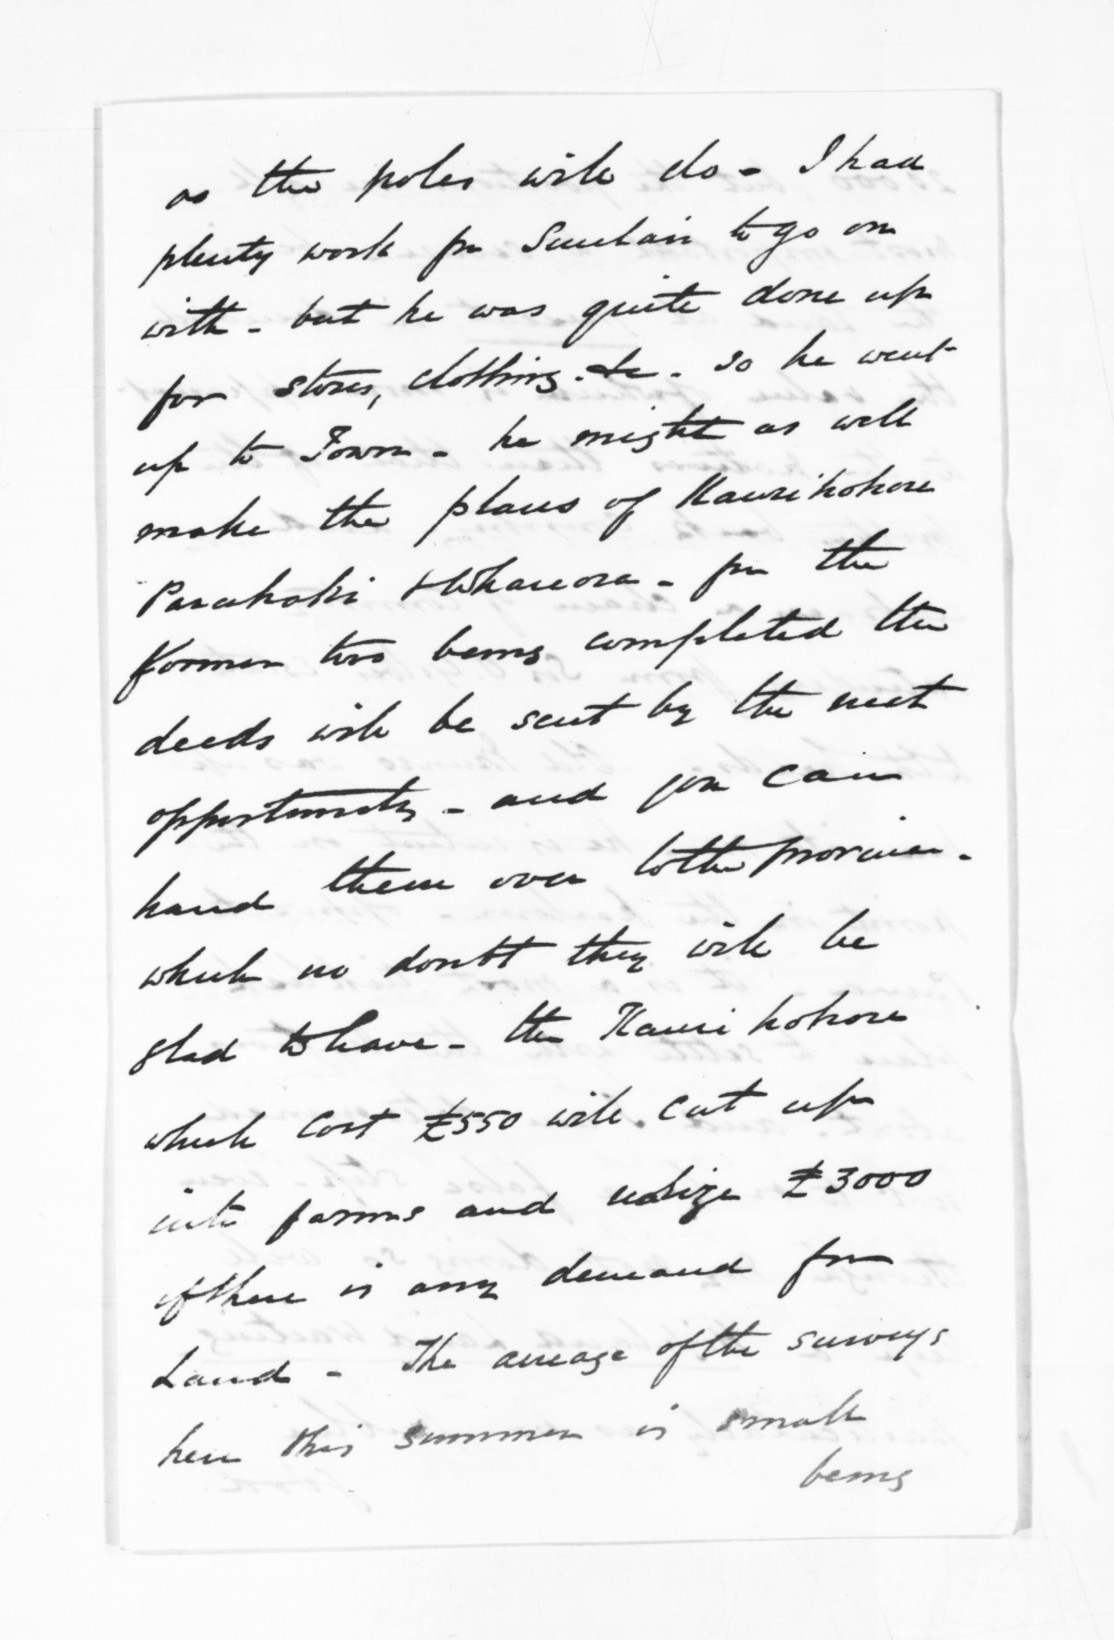 as the poles will do - I had
plenty work for Sinclair to go on
with - but he was quite done up
for stores, clothing. &c - so he went
up to Town - he might as well
make the plans of Kaurihohore
Parahaki & Whareora - for the
former two being completed the
deeds will be sent by the next
opportunity - and you can
hand them over to the province -
which no doubt they will be
glad to have - the Kaurihohore
which cost £550 will cut up
into farms and realize £3000
if there is any demand for
Land - The acreage of the surveys
here this summer is small
being